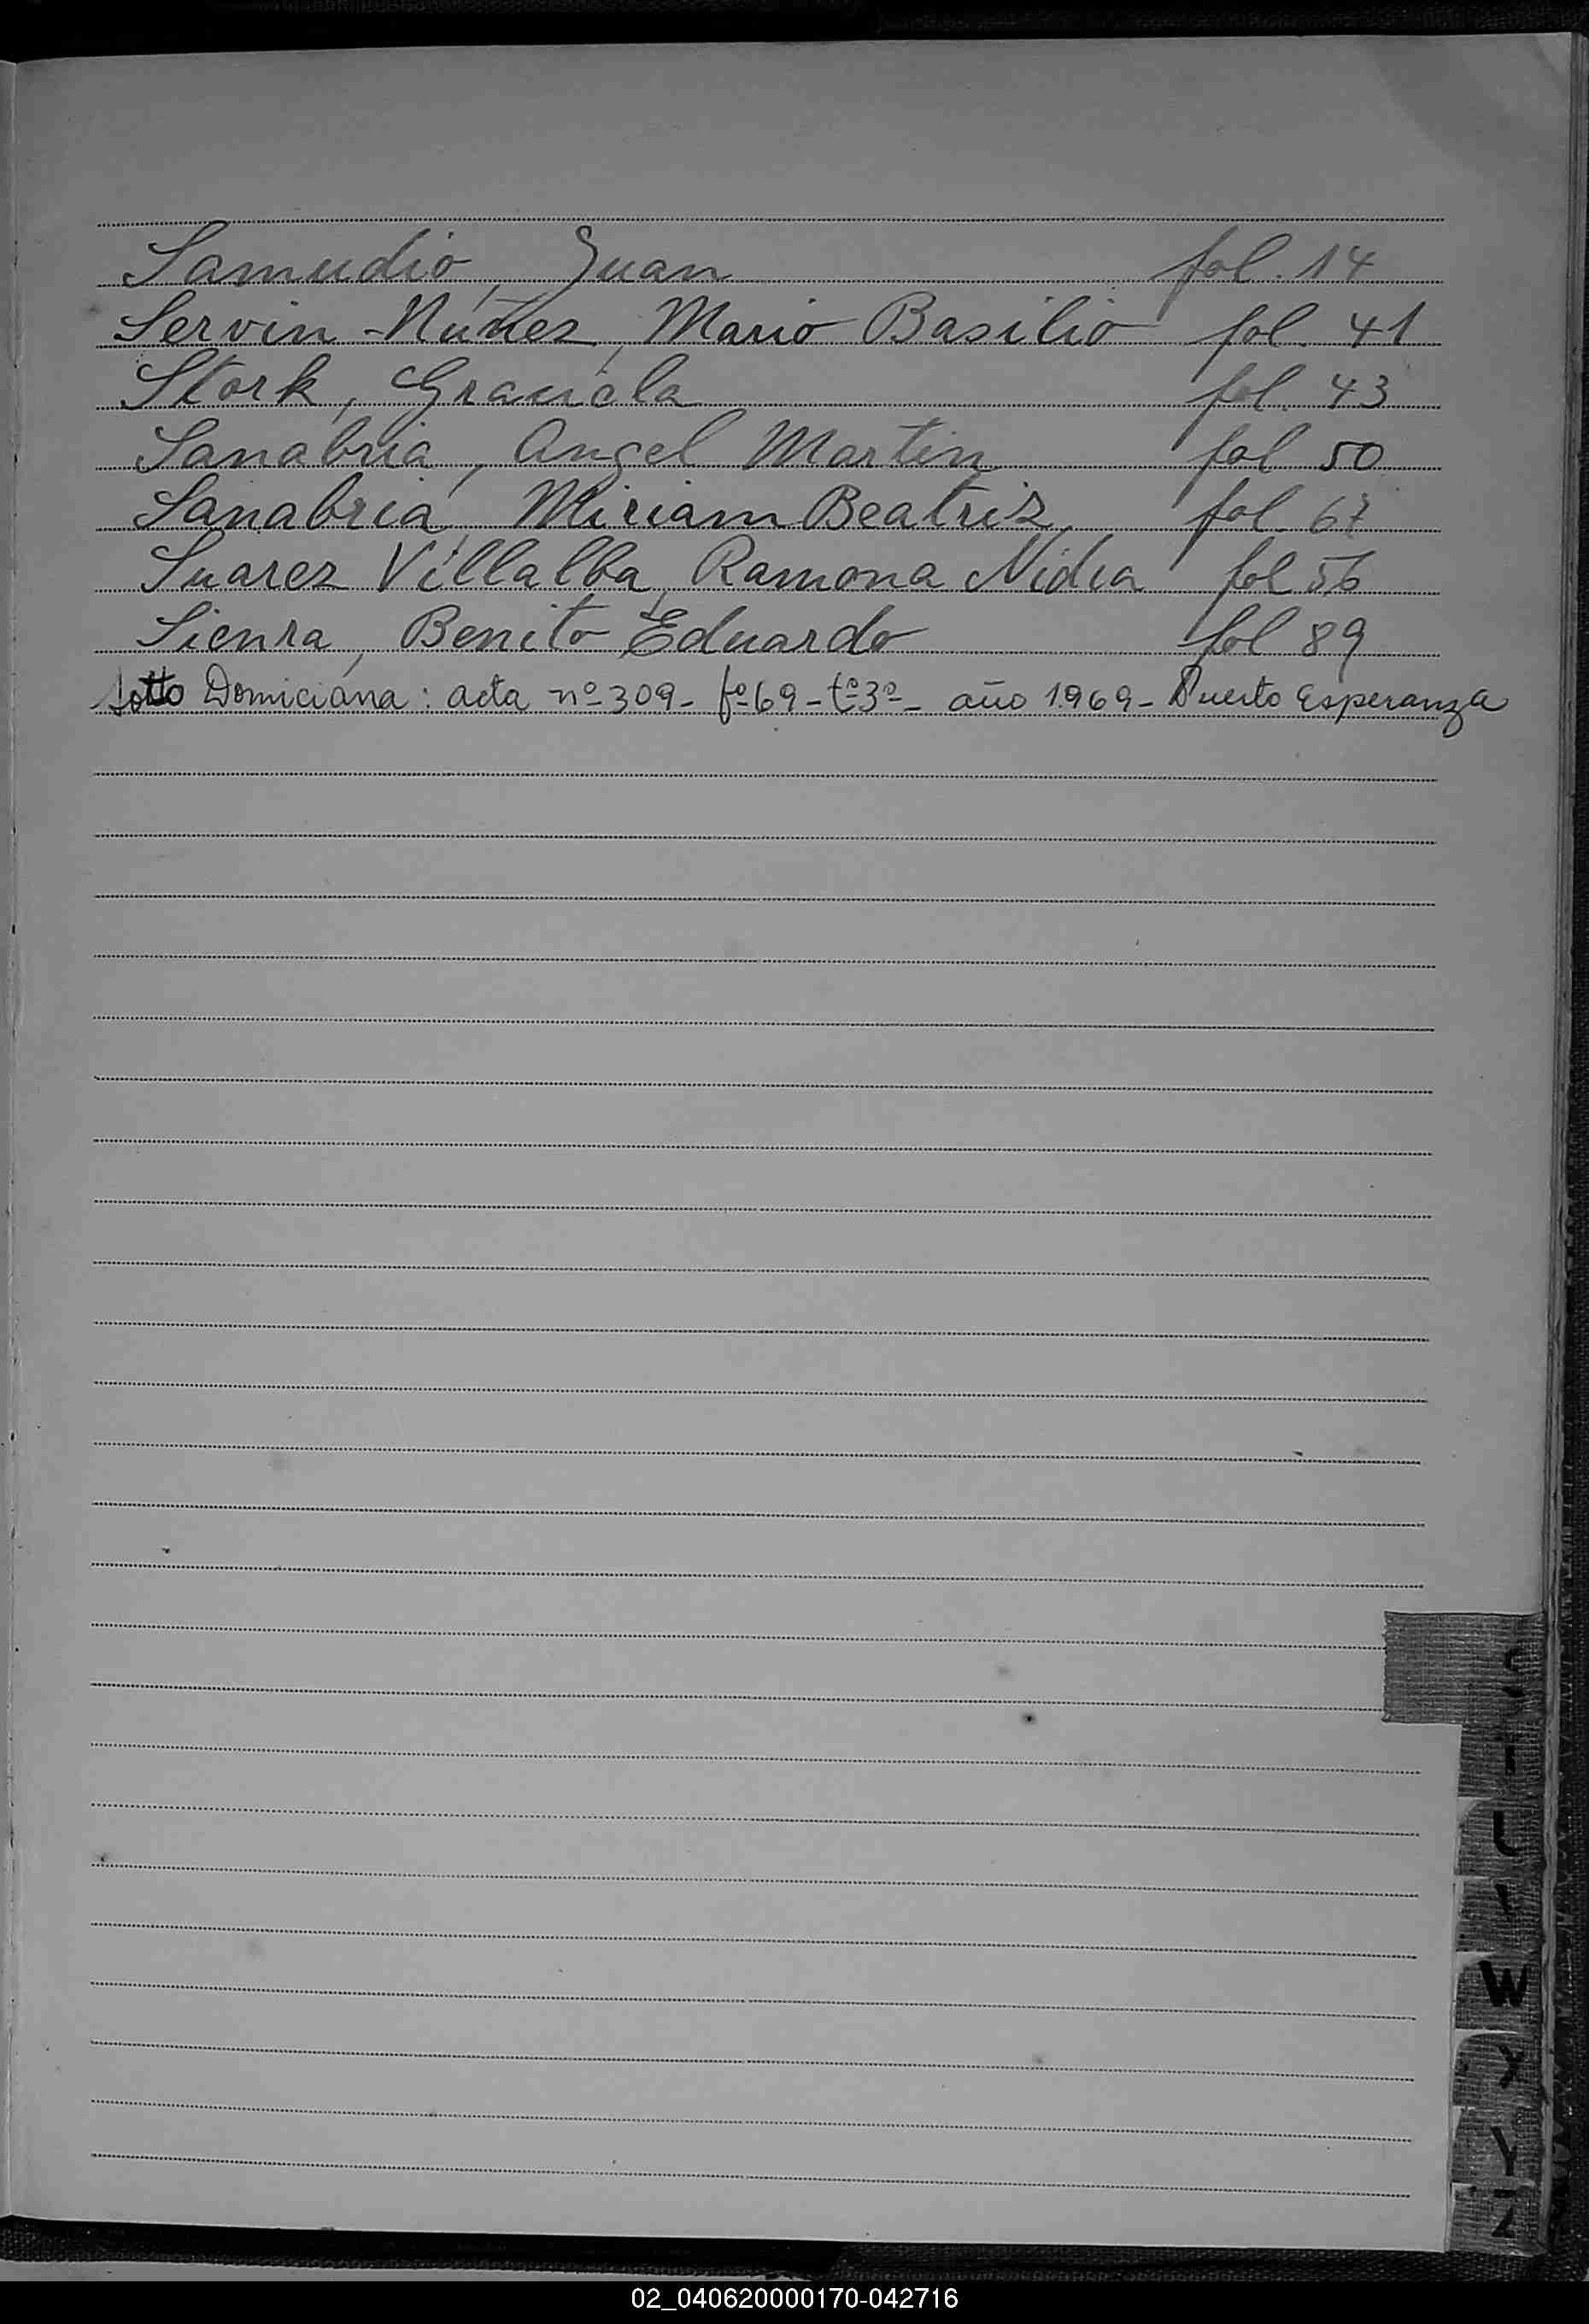 Samudio, Juan fol. 14
Servin-Núñez, Mario Basilio fol. 41
Stork, Graciela fol. 43
Sanabria, Angel Martin fol 50
Sanabria, Miriam Beatriz, fol. 67
Suarez Villalba, Ramona Nidia fol 56
Sienra, Benito Eduardo fol 89
Sotto Domiciana: acta nº 309- fº 69- tº 3º- año 1969- Puerto Esperanza
S
T
U
W
X
Y
Z
02_040620000170-042716